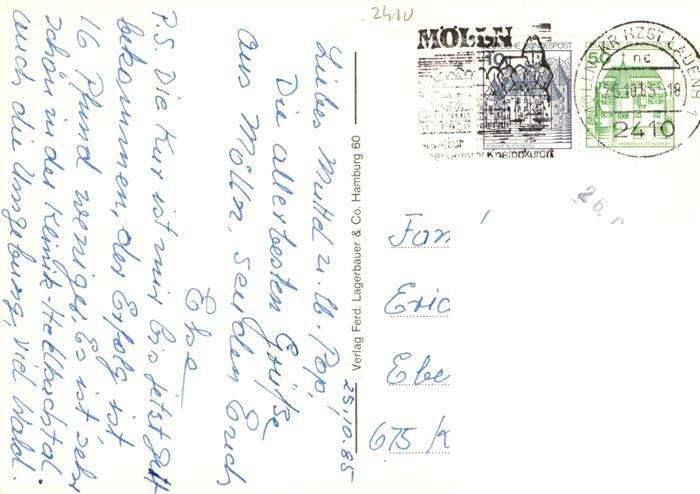 2410
MÖLLN
staatlich
anerkannter Kneippkurort
DEUTSCHE BUNDESPOST
10
50
2410
25.10.85
Liebes Muttl u. lb. Pop,
Die allerbesten Grüße
aus Mölln, senden Euch
Else
P.S. Die Kur ist mir bis jetzt gut
bekommen, der Erfolg ist
16 Pfund weniger. Es ist sehr
schön in der Klinik-Hellbachtal
auch die Umgebung, viel Wald.
Verlag Ferd. Lagerbauer & Co. Hamburg 60
Fam
Eric
Ebe
675 /K